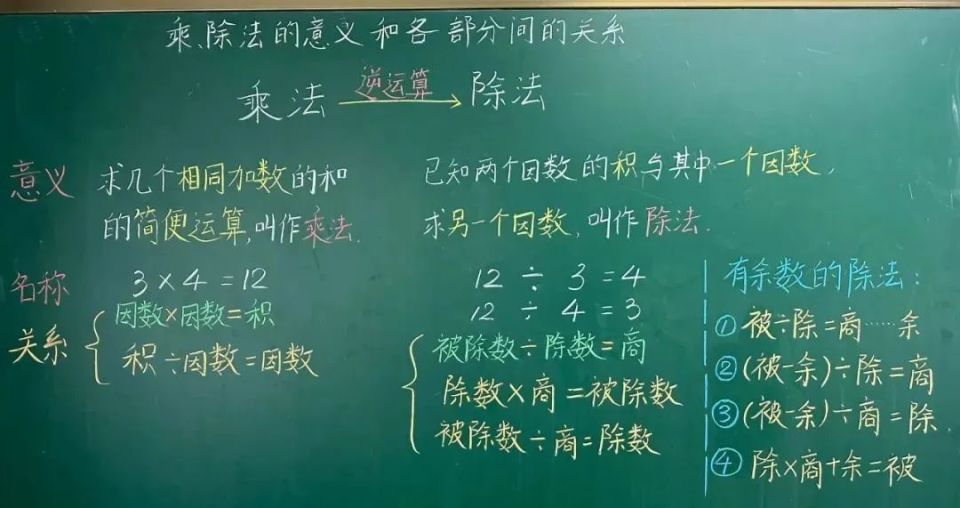 乘、除法的意义和各部分间的关系
乘法 逆运算 除法
意义 求几个相同加数的和
的简便运算,叫作乘法.
已知两个因数的积与其中一个因数,
求另一个因数,叫作除法.
名称 3×4=12
关系 因数×因数=积
积÷因数=因数
12÷3=4
12÷4=3
被除数÷除数=商
除数×商=被除数
被除数÷商=除数
有余数的除法:
①被÷除=商……余
②(被-余)÷除=商
③(被-余)÷商=除
④除×商+余=被